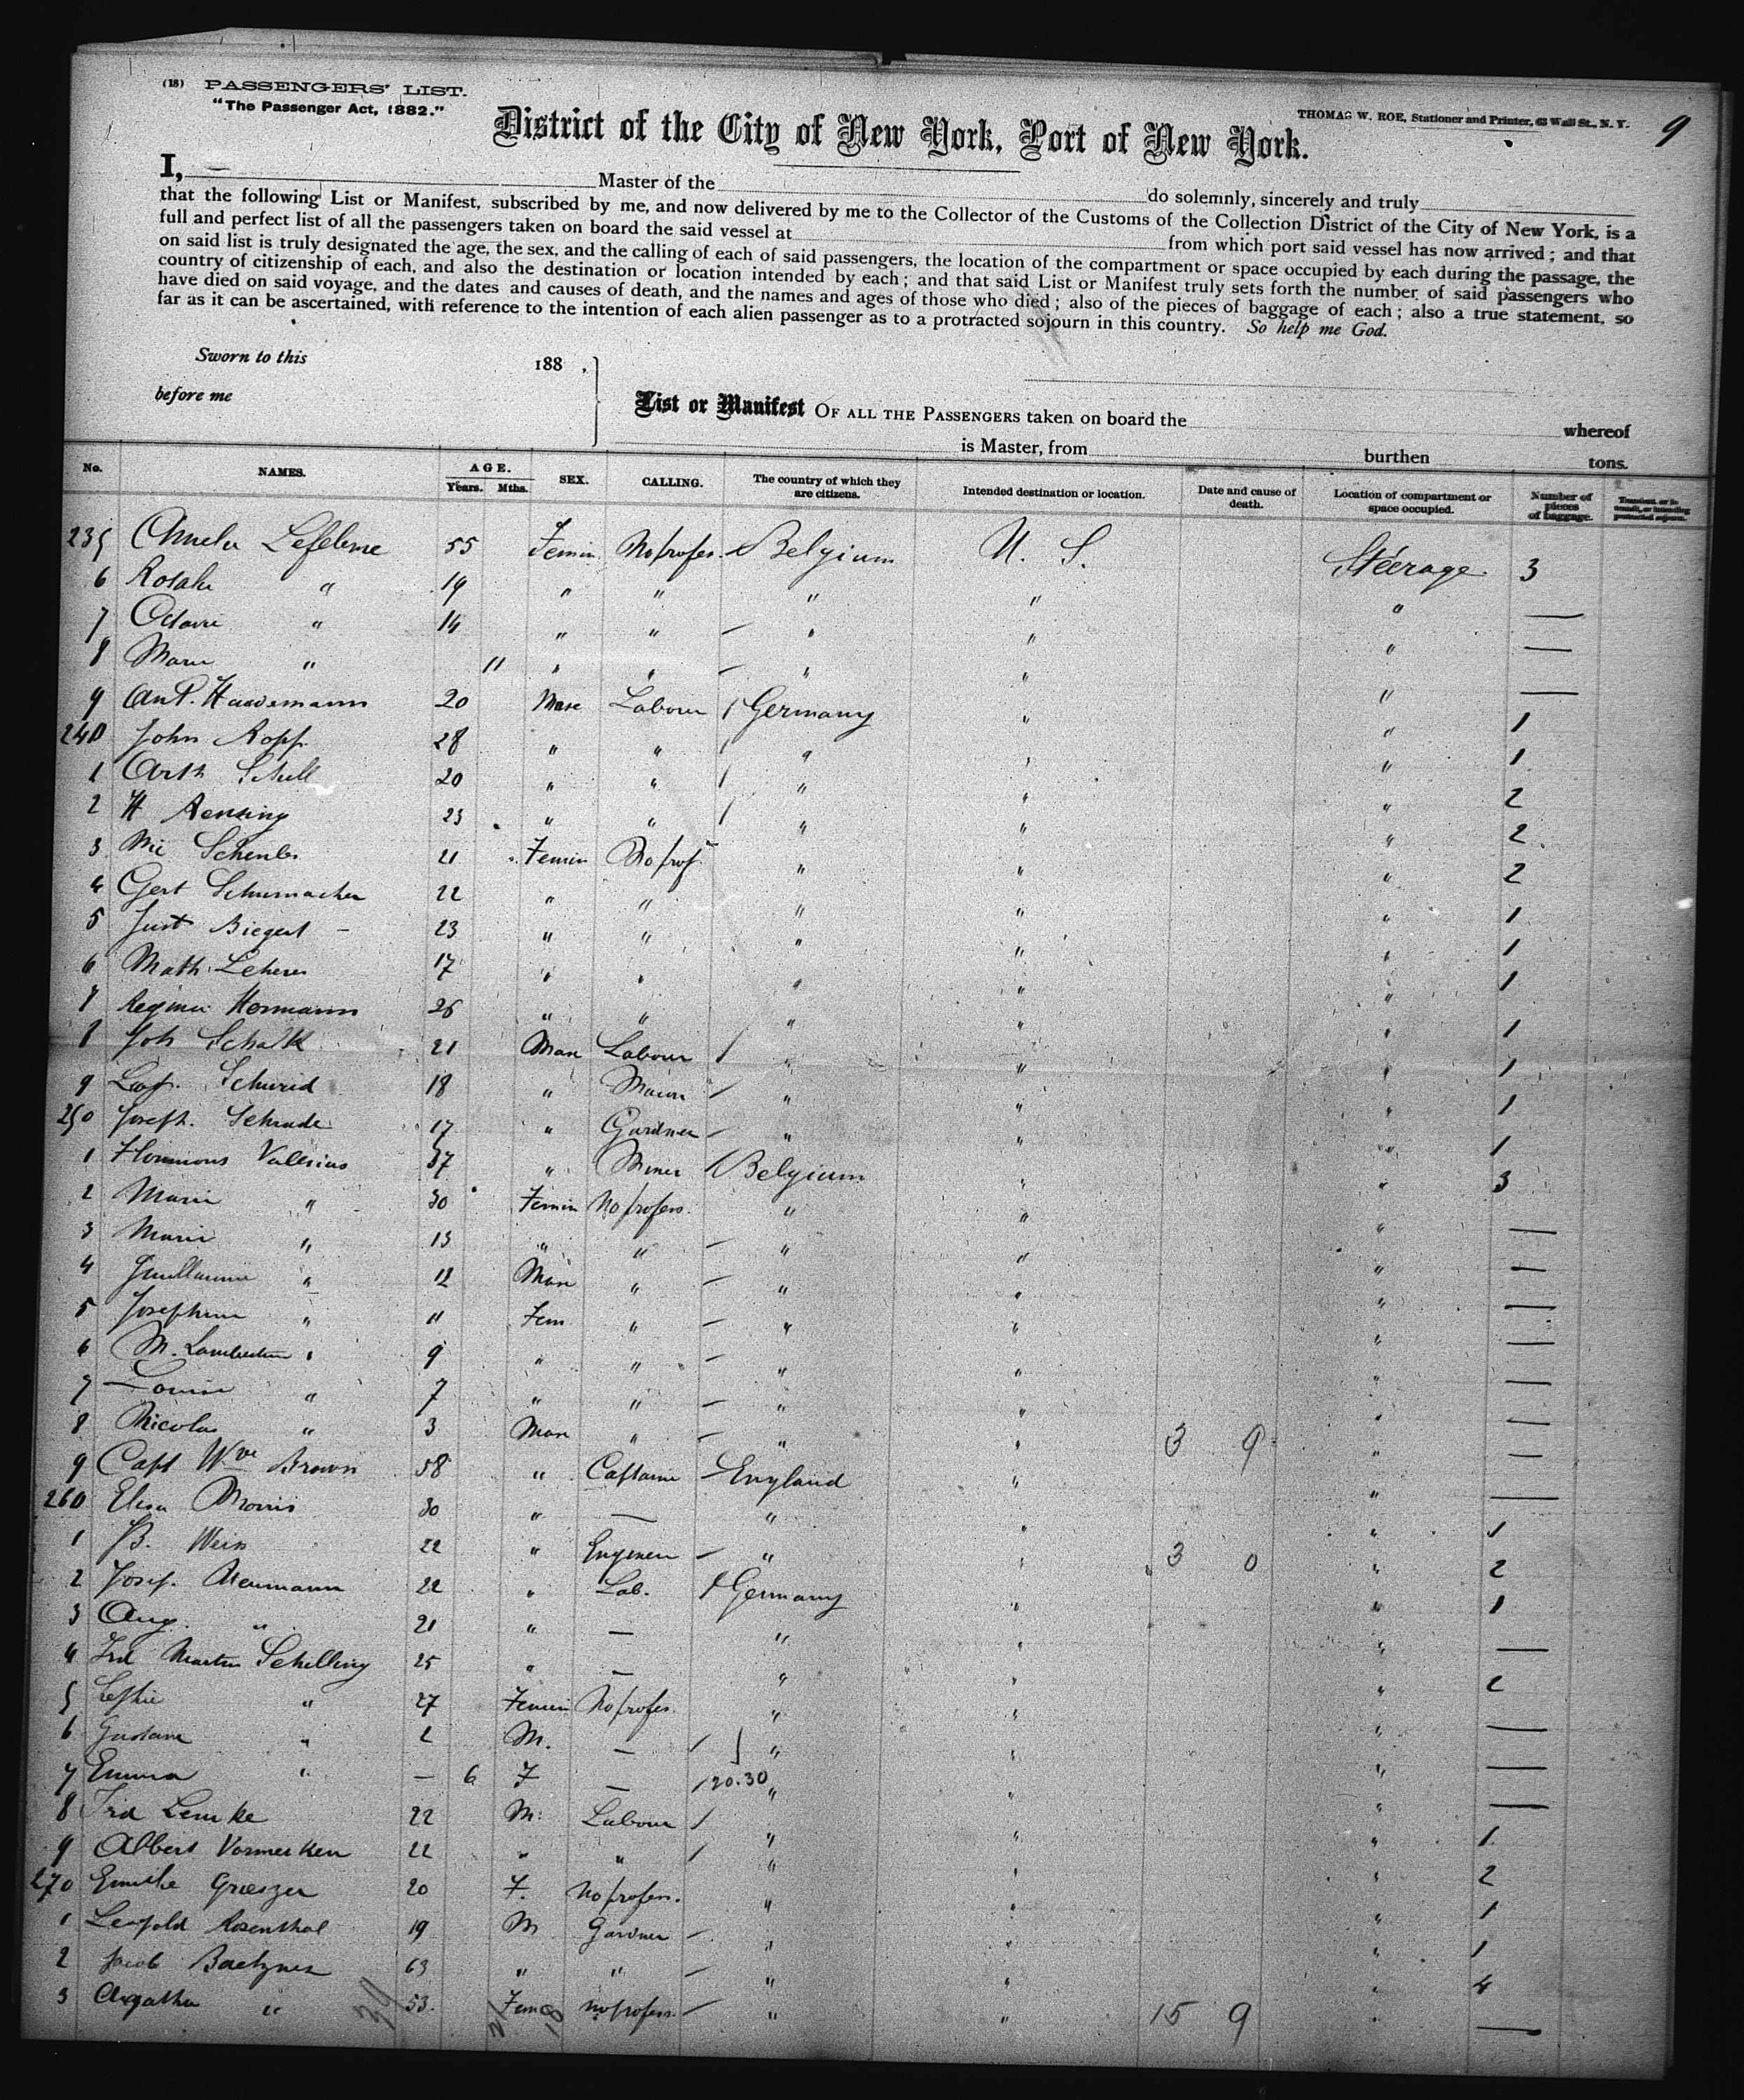 (18) PASSENGERS' LIST.
"The Passenger Act, 1882."
THOMAS W. ROE, Stationer and Printer, 63 Wall St., N. Y.
9
District of the City of New York, Port of New York.
I, Master of the do solemnly, sincerely and truly
that the following List or Manifest, subscribed by me, and now delivered by me to the Collector of the Customs of the Collection District of the City of New York, is a
full and perfect list of all the passengers taken on board the said vessel at from which port said vessel has now arrived; and that
on said list is truly designated the age, the sex, and the calling of each of said passengers, the location of the compartment or space occupied by each during the passage, the
country of citizenship of each, and also the destination or location intended by each; and that said List or Manifest truly sets forth the number of said passengers who
have died on said voyage, and the dates and causes of death, and the names and ages of those who died; also of the pieces of baggage of each; also a true statement, so
far as it can be ascertained, with reference to the intention of each alien passenger as to a protracted sojourn in this country. So help me God.
Sworn to this 188 ,
before me
List or Manifest OF ALL THE PASSENGERS taken on board the whereof
is Master, from burthen tons.
No. NAMES. AGE. Years. Mths. SEX. CALLING. The country of which they are citizens. Intended destination or location. Date and cause of death. Location of compartment or space occupied. Number of pieces of baggage.
235 Lefebvre 55 Femin. No profes. Belgium U. S. Steerage 3
6 " 19 " " " " " —
7 Octavie " 14 " " " " " —
8 Marie " 11 " " " " " —
9 20 Masc Labour Germany " " 1
240 John Ropp 28 " " " " " 1
1 Arth Schell 20 " " " " " 2
2 H Henning 23 " " " " " 2
3 21 Femin No prof. " " " 2
4 Gert Schumacher 22 " " " " " 1
5 Just Biegert 23 " " " " " 1
6 Math. 17 " " " " " 1
7 Regina Hermann 26 " " " " " 1
8 Joh Schalk 21 Masc Labour " " " 1
9 Schmid 18 " " " " 1
250 Joseph. Schrade 17 " Gardner " " " 1
1 37 " Miner Belgium " " 3
2 Marie " 30 Femin No profess. " " " —
3 Marie " 13 " " " " " —
4 Guillaume " 12 Masc " " " " —
5 Josephine " 11 Fem " " " " —
6 M. " 9 " " " " " —
7 Louise " 7 " " " " " —
8 Nicolas " 3 Masc " " " 3 9 " —
9 Capt Brown 58 " Captaine England " " —
260 Elisa Morris 30 " — " " " 1
1 B. Weis 22 " Engineer " " 3 0 " 2
2 Josef. Neumann 22 " Lab. Germany " " 1
3 Aug. " 21 " — " " " —
4 Frd Martin Schelling 25 " — " " " 2
5 " 27 Femin No profes. " " " —
6 Gustave " 2 M. — " " " —
7 Emma " — 6 F — 20.30 " " " —
8 Frd Lemke 22 M. Labour " " " 1
9 Albert 22 " " " " " 2
270 Emilie 20 F. No profess. " " " 1
1 Leopold Rosenthal 19 M Gardner " " " 1
2 Jacob 63 " " " " " 4
3 Agatha " 53. Fem no profess. " " 15 9 " —